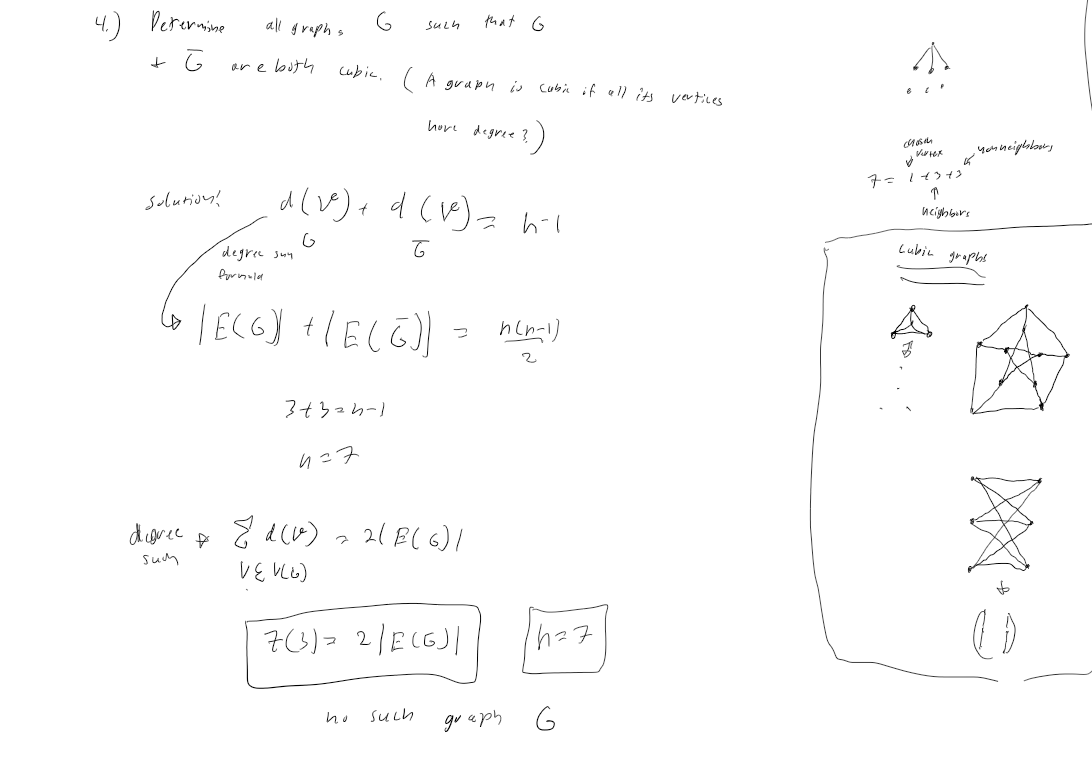 4.) Determine all graphs G such that G
+ G̅ are both cubic. (A graph is cubic if all its vertices
have degree 3)
Solution!
d(v) + d(v) = n-1
G G̅
degree sum
formula
|E(G)| + |E(G̅)| = n(n-1)/2
3+3=n-1
n=7
degree sum → Σ d(v) = 2|E(G)|
v∈V(G)
7(3) = 2|E(G)|
n=7
no such graph G
chosen
vertex
nonneighbors
7 = 1+3+3
neighbors
Cubic graphs